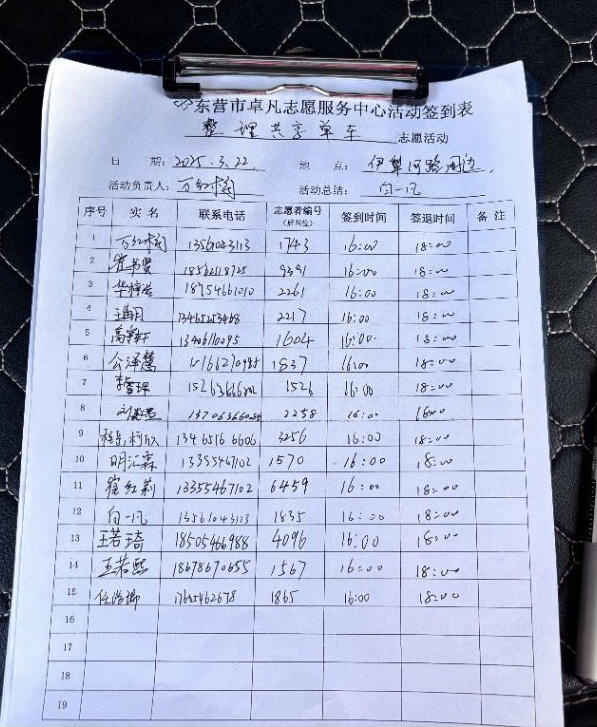 东营市卓凡志愿服务中心活动签到表
整理共享单车 志愿活动
日 期: 2025.3.22 地 点: 伊犁河路周边
活动负责人: 万红梅 活动总结: 白一凡
序号 实名 联系电话 志愿者编号 (后四位) 签到时间 签退时间 备注
1 13561043113 1743 16:00 18:00
2 18562118725 9391 16:00 18:00
3 18954661010 2261 16:00 18:00
4 13465253468 2217 16:00 18:00
5 13406110095 1604 16:00 18:00
6 公泽慧 1837 16:00 18:00
7 1526 16:00 18:00
8 2258 16:00
9 13465166606 3256 16:00 18:00
10 明汇霖 13355467102 1570 16:00 18:00
11 崔红莉 13355467102 6459 16:00 18:00
12 白一凡 13561043113 1835 16:00 18:00
13 王若琦 18505466988 4096 16:00 18:00
14 王若熙 18678670655 1567 16:00 18:00
15 17615462678 1865 16:00 18:00
16
17
18
19